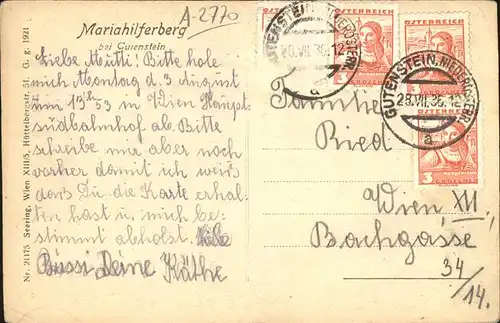 A-2770
Mariahilferberg
bei Gutenstein
Liebe Mutti! Bitte hole
mich Montag d 3 august
um 13h 53 m Wien Haupt-
südbahnhof ab. Bitte
schreibe mir aber noch
vorher damit ich weiß
daß Du die Karte erhal-
ten hast u. mich be-
stimmt abholst.
Bussi Deine Käthe
Nr. 21175 Seering, Wien XIII/5, Hütteldbergstr. 51. G. g. 1921
GUTENSTEIN, NIEDERÖSTERR.
28.VII.36.12
a
GUTENSTEIN, NIEDERÖSTERR.
28.VII.36.12
a
ÖSTERREICH
3
GROSCHEN
3
GROSCHEN
Familie
Ried
Wien XII.
Bachgasse
34/
14.